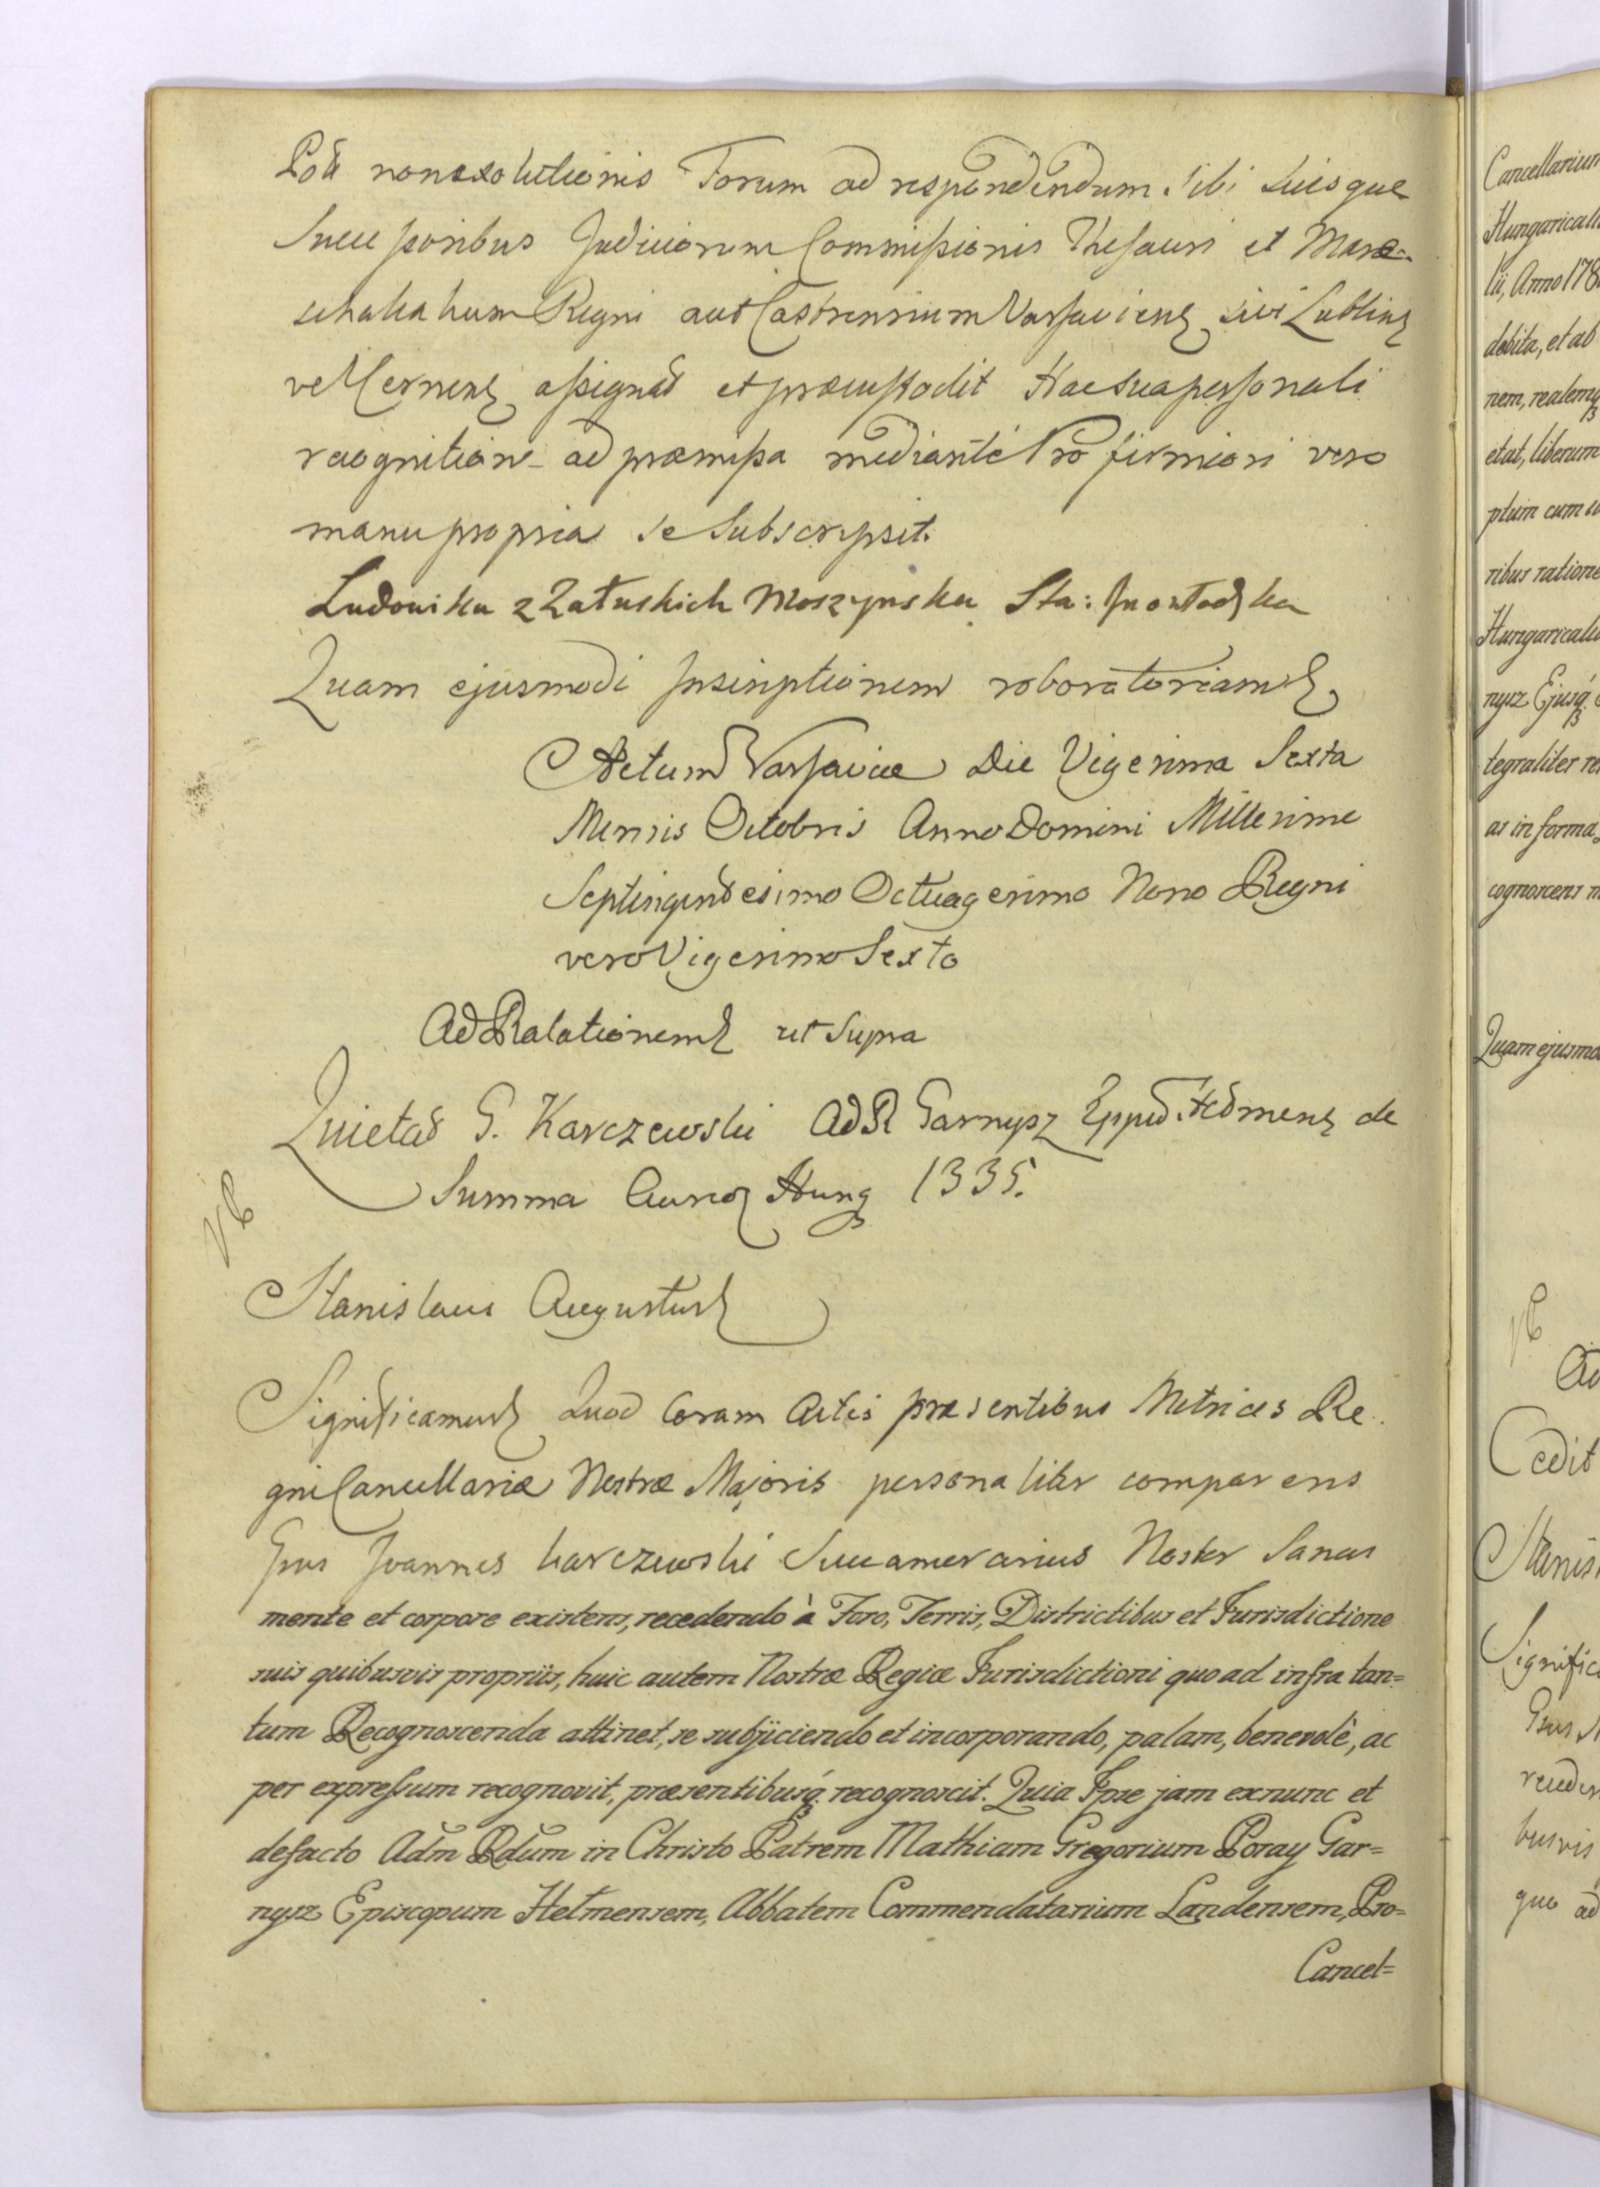 nonexolutionis Forum ad respondendum sibi suisque
Successoribus Judiciorum Commissionis Thesauri et Mare-
schalcalium Regni aut Castrensium Varsaviens sive Lublins
vel Cernens assignat et præcustodit Hac sua personali
recognitione ad præmissa mediante Pro firmiori vero
manu propria se Subscripsit.
Ludowika z Załuskich Moszynska Sta: Inowłodzka
Quam ejusmodi Inscriptionem roboratoriam
Actum Varsaviæ Die Vigesima Sexta
Mensis Octobris Anno Domini Millesimo
Septingentesimo Octuagesimo Nono Regni
vero Vigesimo Sexto
Ad Relationem ut Supra
Quietat G. Karczewski Ad R Garnysz de
Summa Aureor Hung 1335.
Stanislaus Augustus
Significamus Quod Coram Actis præsentibus Metrices Re-
gni Cancellariæ Nostræ Majoris personaliter comparens
Gnus Joannes Karczewski Succamerarius Noster Sanus
mente et corpore existens, recedendo à Foro, Terris, Districtibus et Jurisdictione
suis quibusvis propriis, huic autem Nostræ Regiæ Jurisdictioni quo ad infra tan=
tum Recognoscenda attinet, se subjiciendo et incorporando, palam, benevolè, ac
per expressum recognovit, præsentibusq́ recognoscit. Quia Ipse jam exnunc et
defacto Adm̃ Rdũm in Christo Patrem Mathiam Gregorium Poray Gar=
nysz Episcopum Hełmensem, Abbatem Commendatarium Landensem, Pro=
Cancel=
Cancellarium
Hungaricali
lii, Anno 178
debita, et ab
nem, realemq
etat, liberum
ptum cum
ribus ratione
Hungaricali
nysz Ejusq́
tegraliter re
as in forma
cognoscens
Quam ejusmo
Ad
Cedit
Stanis
Signific
Gnus
receden
busvis
quo ad